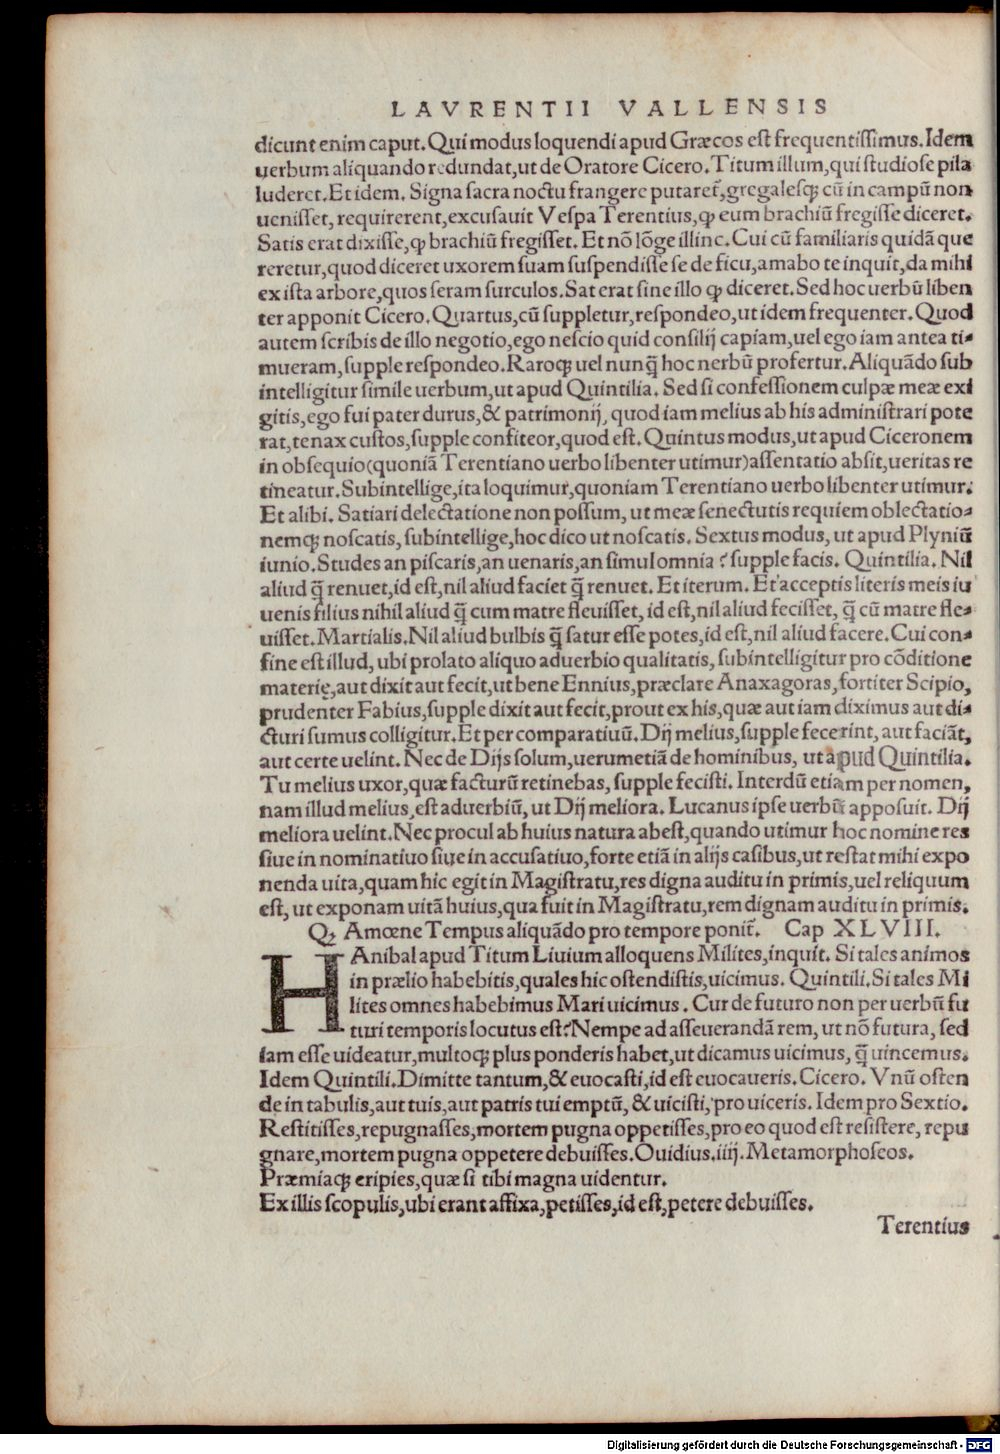 LAVRENTII VALLENSIS
dicunt enim caput. Qui modus loquendi apud Græcos est frequentissimus. Idem
uerbum aliquando redundat, ut de Oratore Cicero. Titum illum, qui studiose pila
luderet. Et idem. Signa sacra noctu frangere putaret᷑, gregalesq; cū in campū non
uenisset, requirerent, excusauit Vespa Terentius, ꝙ eum brachiū fregisse diceret.
Satis erat dixisse, ꝙ brachiū fregisset. Et nō lōge illinc. Cui cū familiaris quidā que
reretur, quod diceret uxorem suam suspendisse se de ficu, amabo te inquit, da mihi
ex ista arbore, quos seram surculos. Sat erat sine illo ꝙ diceret. Sed hoc uerbū liben
ter apponit Cicero. Quartus, cū suppletur, respondeo, ut idem frequenter. Quod
autem scribis de illo negotio, ego nescio quid consilij capiam, uel ego iam antea ti-
mueram, supple respondeo. Raroq; uel nunq̄ hoc nerbū profertur. Aliquādo sub
intelligitur simile uerbum, ut apud Quintilia. Sed si confessionem culpæ meæ exi
gitis, ego fui pater durus, & patrimonij, quod iam melius ab his administrari pote
rat, tenax custos, supple confiteor, quod est. Quintus modus, ut apud Ciceronem
in obsequio (quoniā Terentiano uerbo libenter utimur) assentatio absit, ueritas re
tineatur. Subintellige, ita loquimur, quoniam Terentiano uerbo libenter utimur.
Et alibi. Satiari delectatione non possum, ut meæ senectutis requiem oblectatio-
nemq; noscatis, subintellige, hoc dico ut noscatis. Sextus modus, ut apud Plyniū
iunio. Studes an piscaris, an uenaris, an simul omnia? supple facis. Quintilia. Nil
aliud q̄ renuet, id est, nil aliud faciet q̄ renuet. Et iterum. Et acceptis literis meis iu
uenis filius nihil aliud q̄ cum matre fleuisset, id est, nil aliud fecisset, q̄ cū matre fle-
uisset. Martialis. Nil aliud bulbis q̄ satur esse potes, id est, nil aliud facere. Cui con-
fine est illud, ubi prolato aliquo aduerbio qualitatis, subintelligitur pro cōditione
materię, aut dixit aut fecit, ut bene Ennius, præclare Anaxagoras, fortiter Scipio,
prudenter Fabius, supple dixit aut fecit, prout ex his, quæ aut iam diximus aut di-
cturi sumus colligitur. Et per comparatiuū. Dij melius, supple fecerint, aut faciāt,
aut certe uelint. Nec de Dijs solum, uerumetiā de hominibus, ut apud Quintilia.
Tu melius uxor, quæ facturū retinebas, supple fecisti. Interdū etiam per nomen,
nam illud melius, est aduerbiū, ut Dij meliora. Lucanus ipse uerbū apposuit. Dij
meliora uelint. Nec procul ab huius natura abest, quando utimur hoc nomine res
siue in nominatiuo siue in accusatiuo, forte etiā in alijs casibus, ut restat mihi expo
nenda uita, quam hic egit in Magistratu, res digna auditu in primis, uel reliquum
est, ut exponam uitā huius, qua fuit in Magistratu, rem dignam auditu in primis.
Qꝫ Amœne Tempus aliquādo pro tempore ponit᷑. Cap XLVIII.
HAnibal apud Titum Liuium alloquens Milites, inquit. Si tales animos
in prælio habebitis, quales hic ostendistis, uicimus. Quintili. Si tales Mi
lites omnes habebimus Mari uicimus. Cur de futuro non per uerbū fu
turi temporis locutus est? Nempe ad asseuerandā rem, ut nō futura, sed
iam esse uideatur, multoq; plus ponderis habet, ut dicamus uicimus, q̄ uincemus.
Idem Quintili. Dimitte tantum, & euocasti, id est euocaueris. Cicero. Vnū osten
de in tabulis, aut tuis, aut patris tui emptū, & uicisti, pro uiceris. Idem pro Sextio.
Restitisses, repugnasses, mortem pugna oppetisses, pro eo quod est resistere, repu
gnare, mortem pugna oppetere debuisses. Ouidius. iiij. Metamorphoseos.
Præmiaq; eripies, quæ si tibi magna uidentur.
Ex illis scopulis, ubi erant affixa, petisses, id est, petere debuisses.
Terentius
Digitalisierung gefördert durch die Deutsche Forschungsgemeinschaft - DFG